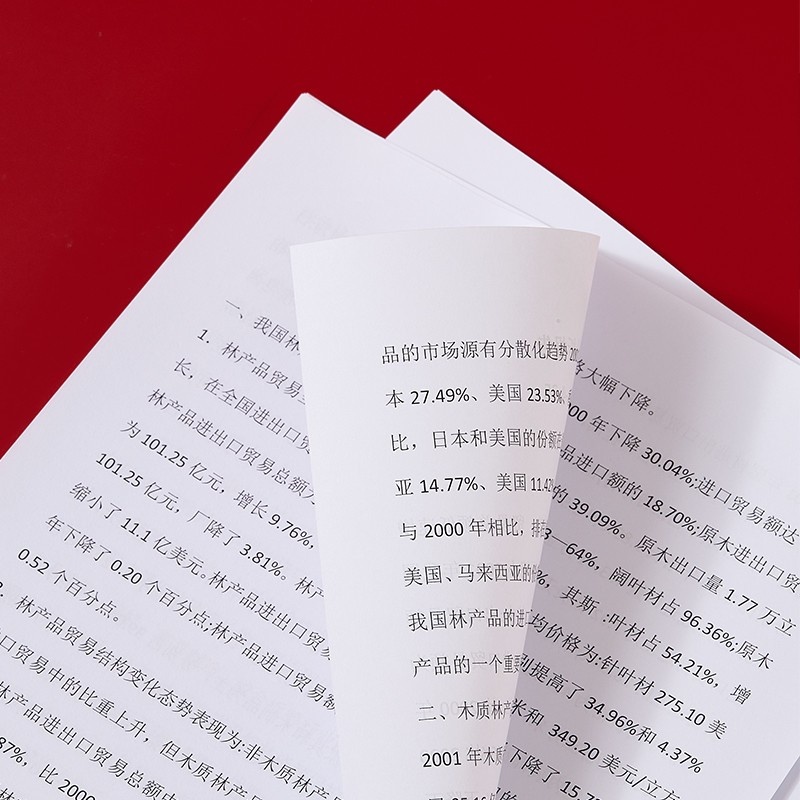 一、我国林
1．林产品贸易
长，在全国进出口贸
林产品进出口贸易总额
为 101.25 亿元，增长 9.76%，
101.25 亿元，厂降了 3.81%。林产
缩小了 11.1 亿美元。林产品进出口贸易
年下降了 0.20 个百分点;林产品进口贸易额
0.52 个百分点。
林产品贸易结构变化态势表现为:非木质林产
口贸易中的比重上升，但木质林产品
林产品进出口贸易总额中
87%，比 2000
品的市场源有分散化趋势
本 27.49%、美国 23.53%、
比，日本和美国的份额
亚 14.77%、美国 11.42
与 2000 年相比，排
美国、马来西亚的份
我国林产品的进口
产品的一个重要
二、木质林产
2001 年木质
大幅下降。
00 年下降 30.04%;进口贸易额达
品进口额的 18.70%;原木进出口贸
的 39.09%。原木出口量 1.77 万立
3—64%，阔叶材占 96.36%:原木
%，其斯 :叶材占 54.21%，增
均价格为:针叶材 275.10 美
提高了 34.96%和 4.37%
米和 349.20 美元/立方
下降了 15.7